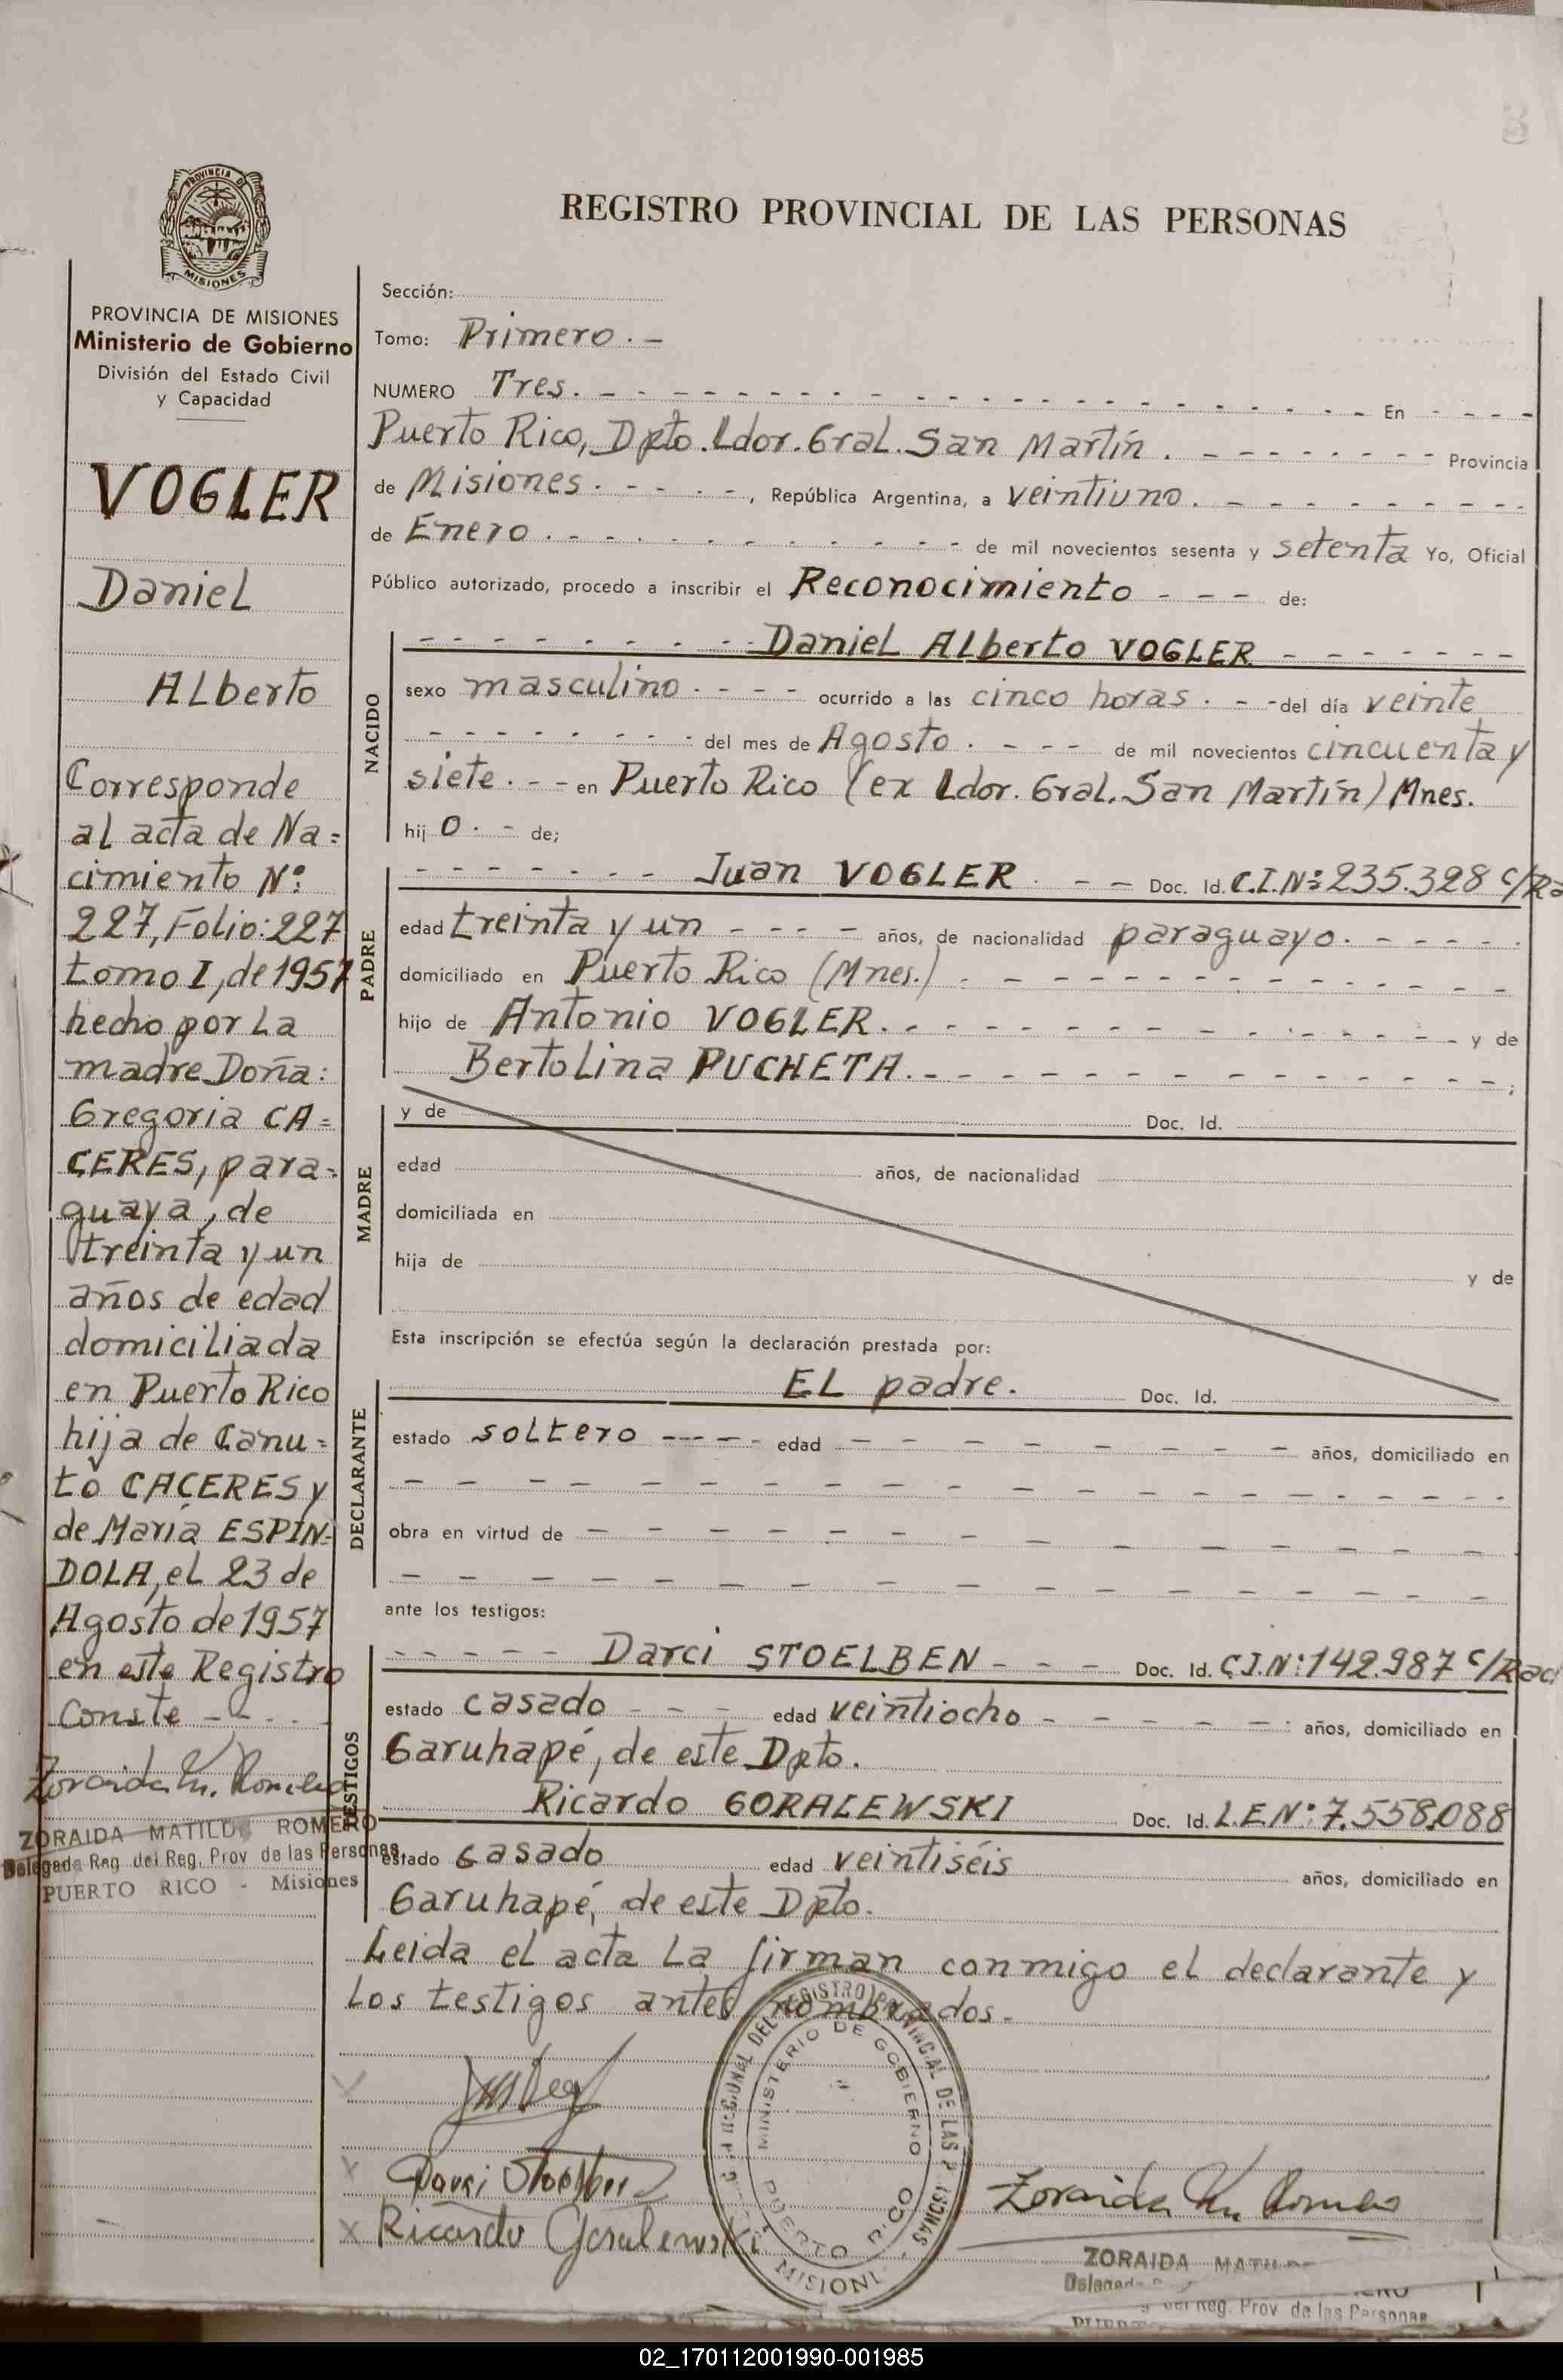 PROVINCIA DE
MISIONES
PROVINCIA DE MISIONES
Ministerio de Gobierno
División del Estado Civil
y Capacidad
VOGLER
Daniel
Alberto
Corresponde
al acta de Na=
cimiento Nº:
227, Folio: 227
tomo I, de 1957
hecho por La
madre Doña:
Gregoria CA=
CERES, para=
guaya, de
treinta y un
años de edad
domiciliada
en Puerto Rico
hija de Canu=
to CACERES y
de Maria ESPIN=
DOLA, el 23 de
Agosto de 1957
en este Registro
Conste - - - -
Zoraida M. Romero
ZORAIDA MATILDE ROMERO
Delegada Reg. del Reg. Prov de las Personas
PUERTO RICO - Misiones
REGISTRO PROVINCIAL DE LAS PERSONAS
Sección:
Tomo: Primero. -
NUMERO Tres. - - - En - - - -
Puerto Rico, Dpto. Ldor. Gral. San Martín. - - - Provincia
de Misiones. - - - -, República Argentina, a veintiuno. - - -
de Enero. - - - de mil novecientos sesenta y setenta Yo, Oficial
Público autorizado, procedo a inscribir el Reconocimiento - - - de:
NACIDO
- - - Daniel Alberto VOGLER - - -
sexo masculino. - - - ocurrido a las cinco horas. - - del día veinte
- - - del mes de Agosto. - - - de mil novecientos cincuenta y
siete. - - en Puerto Rico (ex Ldor. Gral. San Martín) Mnes.
hij o. - de;
PADRE
- - - Juan VOGLER. - - Doc. Id. C.I.Nº: 235.328 c/Ra
edad treinta y un - - - - años, de nacionalidad paraguayo. - - - -
domiciliado en Puerto Rico (Mnes.) - - -
hijo de Antonio VOGLER. - - - y de
Bertolina PUCHETA. - - - ;
MADRE
y de Doc. Id.
edad años, de nacionalidad
domiciliada en
hija de y de
Esta inscripción se efectúa según la declaración prestada por:
DECLARANTE
EL padre. Doc. Id.
estado soltero - - - - edad - - - años, domiciliado en
- - -
obra en virtud de - - -
- - -
ante los testigos:
TESTIGOS
- - - Darci STOELBEN - - - Doc. Id. C.I.Nº: 142.987 c/Rad
estado casado - - - edad veintiocho - - - años, domiciliado en
Garuhapé, de este Dpto.
Ricardo GORALEWSKI Doc. Id. L.E.Nº: 7.558.088
estado casado edad veintiséis años, domiciliado en
Garuhapé, de este Dpto.
Leida el acta La firman conmigo el declarante y
Los testigos antes nombrados.-
MINISTERIO DE GOBIERNO
PUERTO RICO
Darci Stoelben
Ricardo Goralewski
Zoraida M. Romero
ZORAIDA
del Reg. Prov de las Personas
02_170112001990-001985